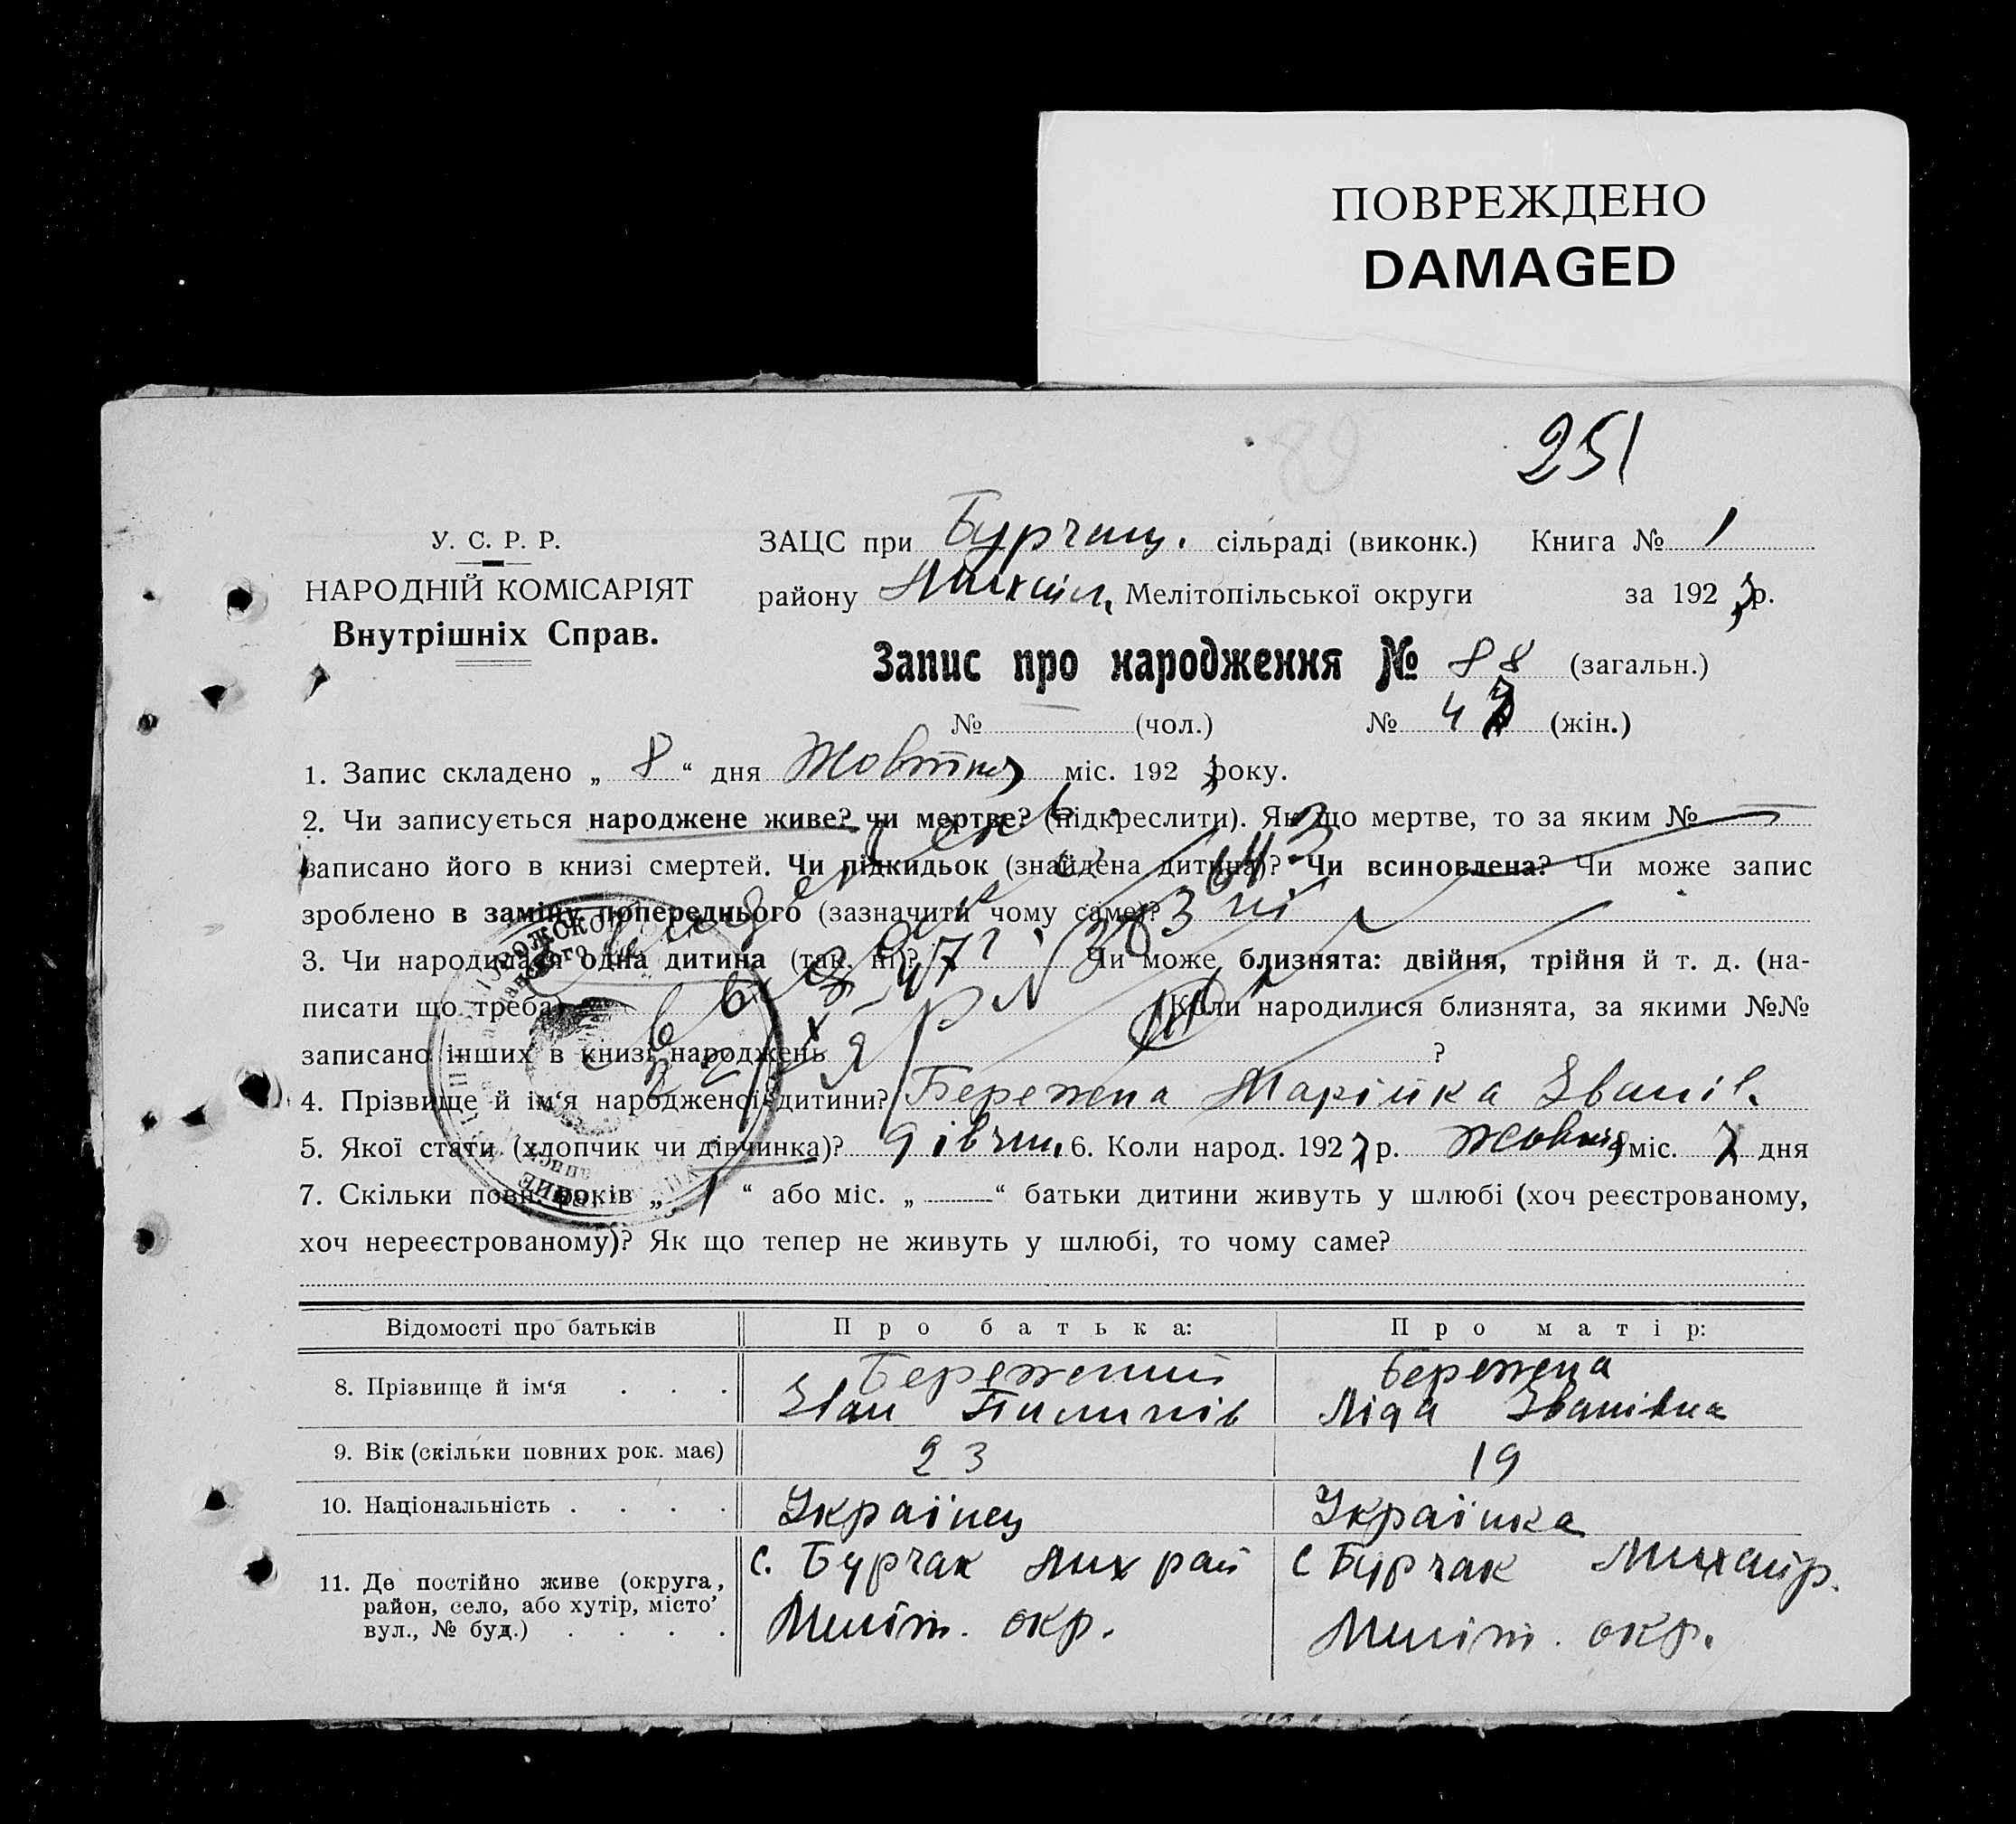 ПОВРЕЖДЕНО
DAMAGED
251
У. С. Р. Р.
НАРОДНІЙ КОМІСАРІЯТ
Внутрішніх Справ.
ЗАЦС при Бурчац. сільраді (виконк.) Книга № 1
району Михайл. Мелітопільської округи за 1927 р.
Запис про народження № 88 (загальн.)
№ (чол.) № 47 (жін.)
1. Запис складено „ 8 “ дня Жовтня міс. 1927 року.
2. Чи записується народжене живе? чи мертве? (підкреслити). Як що мертве, то за яким №
записано його в книзі смертей. Чи підкидьок (знайдена дитина)? Чи всиновлена? Чи може запис
зроблено в заміну попереднього (зазначити чому саме)?
3. Чи народилася одна дитина (так, ні)? Чи може близнята: двійня, трійня й т. д. (на-
писати що треба) Коли народилися близнята, за якими №№
записано інших в книзі народжень ?
4. Прізвище й ім‘я народженої дитини? Бережена Марійка Іванів.
5. Якої стати (хлопчик чи дівчинка)? дівчин. 6. Коли народ. 1927 р. Жовтня міс. 7 дня
7. Скільки повн. років „ 1 “ або міс. „ “ батьки дитини живуть у шлюбі (хоч реєстрованому,
хоч нереєстрованому)? Як що тепер не живуть у шлюбі, то чому саме?
Відомості про батьків Про батька: Про матір:
8. Прізвище й ім‘я . . . Бережений Бережена
Іван Пилипів Ліда Іванівна
9. Вік (скільки повних рок. має) 23 19
10. Національність . . . . Українец Українка
11. Де постійно живе (округа, с. Бурчак Мих рай с Бурчак Михай р.
район, село, або хутір, місто’
вул., № буд.) . . . . Меліт. окр. Меліт. окр.